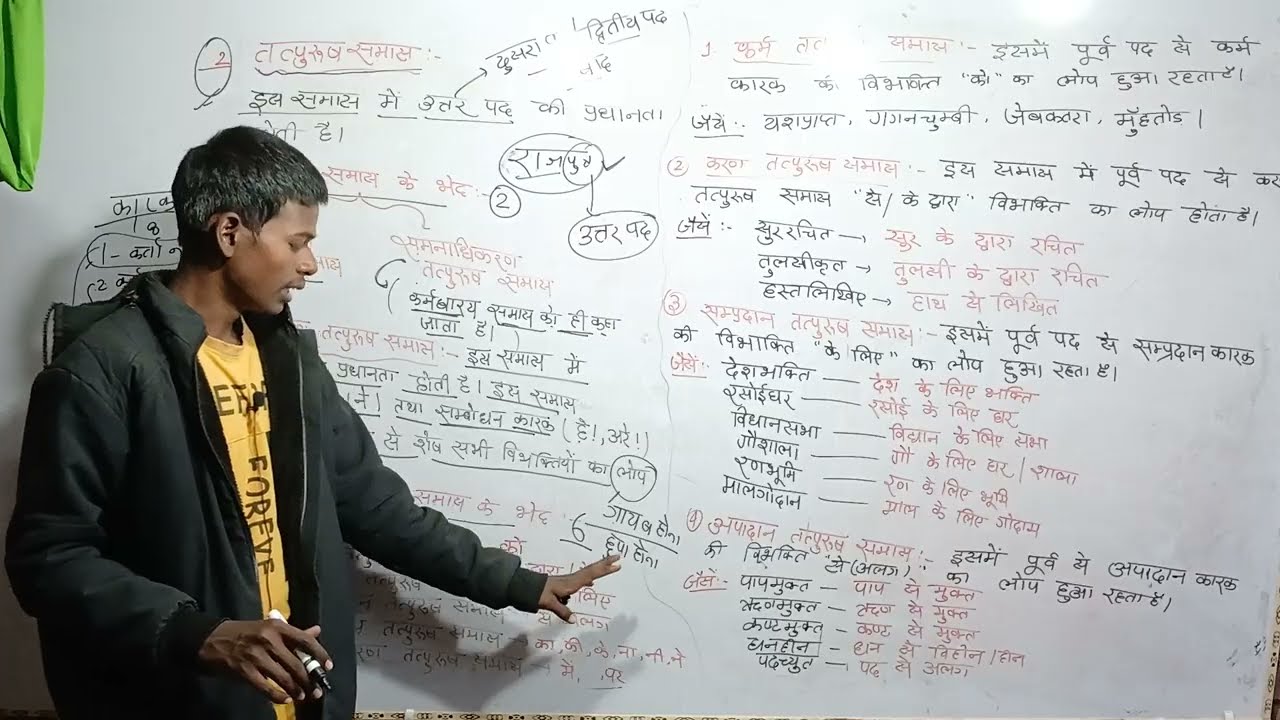 2 तत्पुरूष समास :-
दुसरा द्वितीय पद
इस समास में उत्तर पद की प्रधानता
होती है।
राजपुत्र
उत्तर पद
समास के भेद :- 2
कारक
8
1 - कर्ता ने
2
समनाधिकरण
तत्पुरूष समास
कर्मधारय समास को ही कहा
जाता है।
तत्पुरूष समास :- इस समास में
प्रधानता होती है। इस समास
(ने) तथा सम्बोधन कारक (है!, अरे!)
से शेष सभी विभक्तियों का लोप
गायब होना
हपा होना
समास के भेद :- 6
को
तत्पुरूष
तत्पुरूष समास से अलग
तत्पुरूष समास → का, की, के, ना, नी, ने
तत्पुरूष समास → में, पर
1. कर्म समास :- इसमें पूर्व पद से कर्म
कारक की विभक्ति "को" का लोप हुआ रहता है।
जैसें :- यशप्राप्त, गगनचुम्बी, जेबकतरा, मुँहतोड़।
2 करण तत्पुरूष समास :- इस समास में पूर्व पद से
तत्पुरूष समास "से / के द्वारा" विभक्ति का लोप होता है।
जैसें :- सुररचित → सुर के द्वारा रचित
तुलसीकृत → तुलसी के द्वारा रचित
हस्तलिखिए → हाथ से लिखित
3 सम्प्रदान तत्पुरूष समास :- इसमें पूर्व पद से सम्प्रदान कारक
की विभक्ति "के लिए" का लोप हुआ रहता है।
जैसें :- देशभक्ति — देश के लिए भक्ति
रसोईघर — रसोई के लिए घर
विधानसभा — विधान के लिए सभा
गौशाला — गौ के लिए घर / शाला
रणभूमि — रण के लिए भूमि
मालगोदान — माल के लिए गोदाम
4 अपादान तत्पुरूष समास :- इसमें पूर्व से अपादान कारक
की विभक्ति से (अलग) का लोप हुआ रहता है।
जैसें :- पापमुक्त — पाप से मुक्त
ऋणमुक्त — ऋण से मुक्त
कष्टमुक्त — कष्ट से मुक्त
धनहीन — धन से विहीन / हीन
पदच्युत — पद से अलग
FOREVE